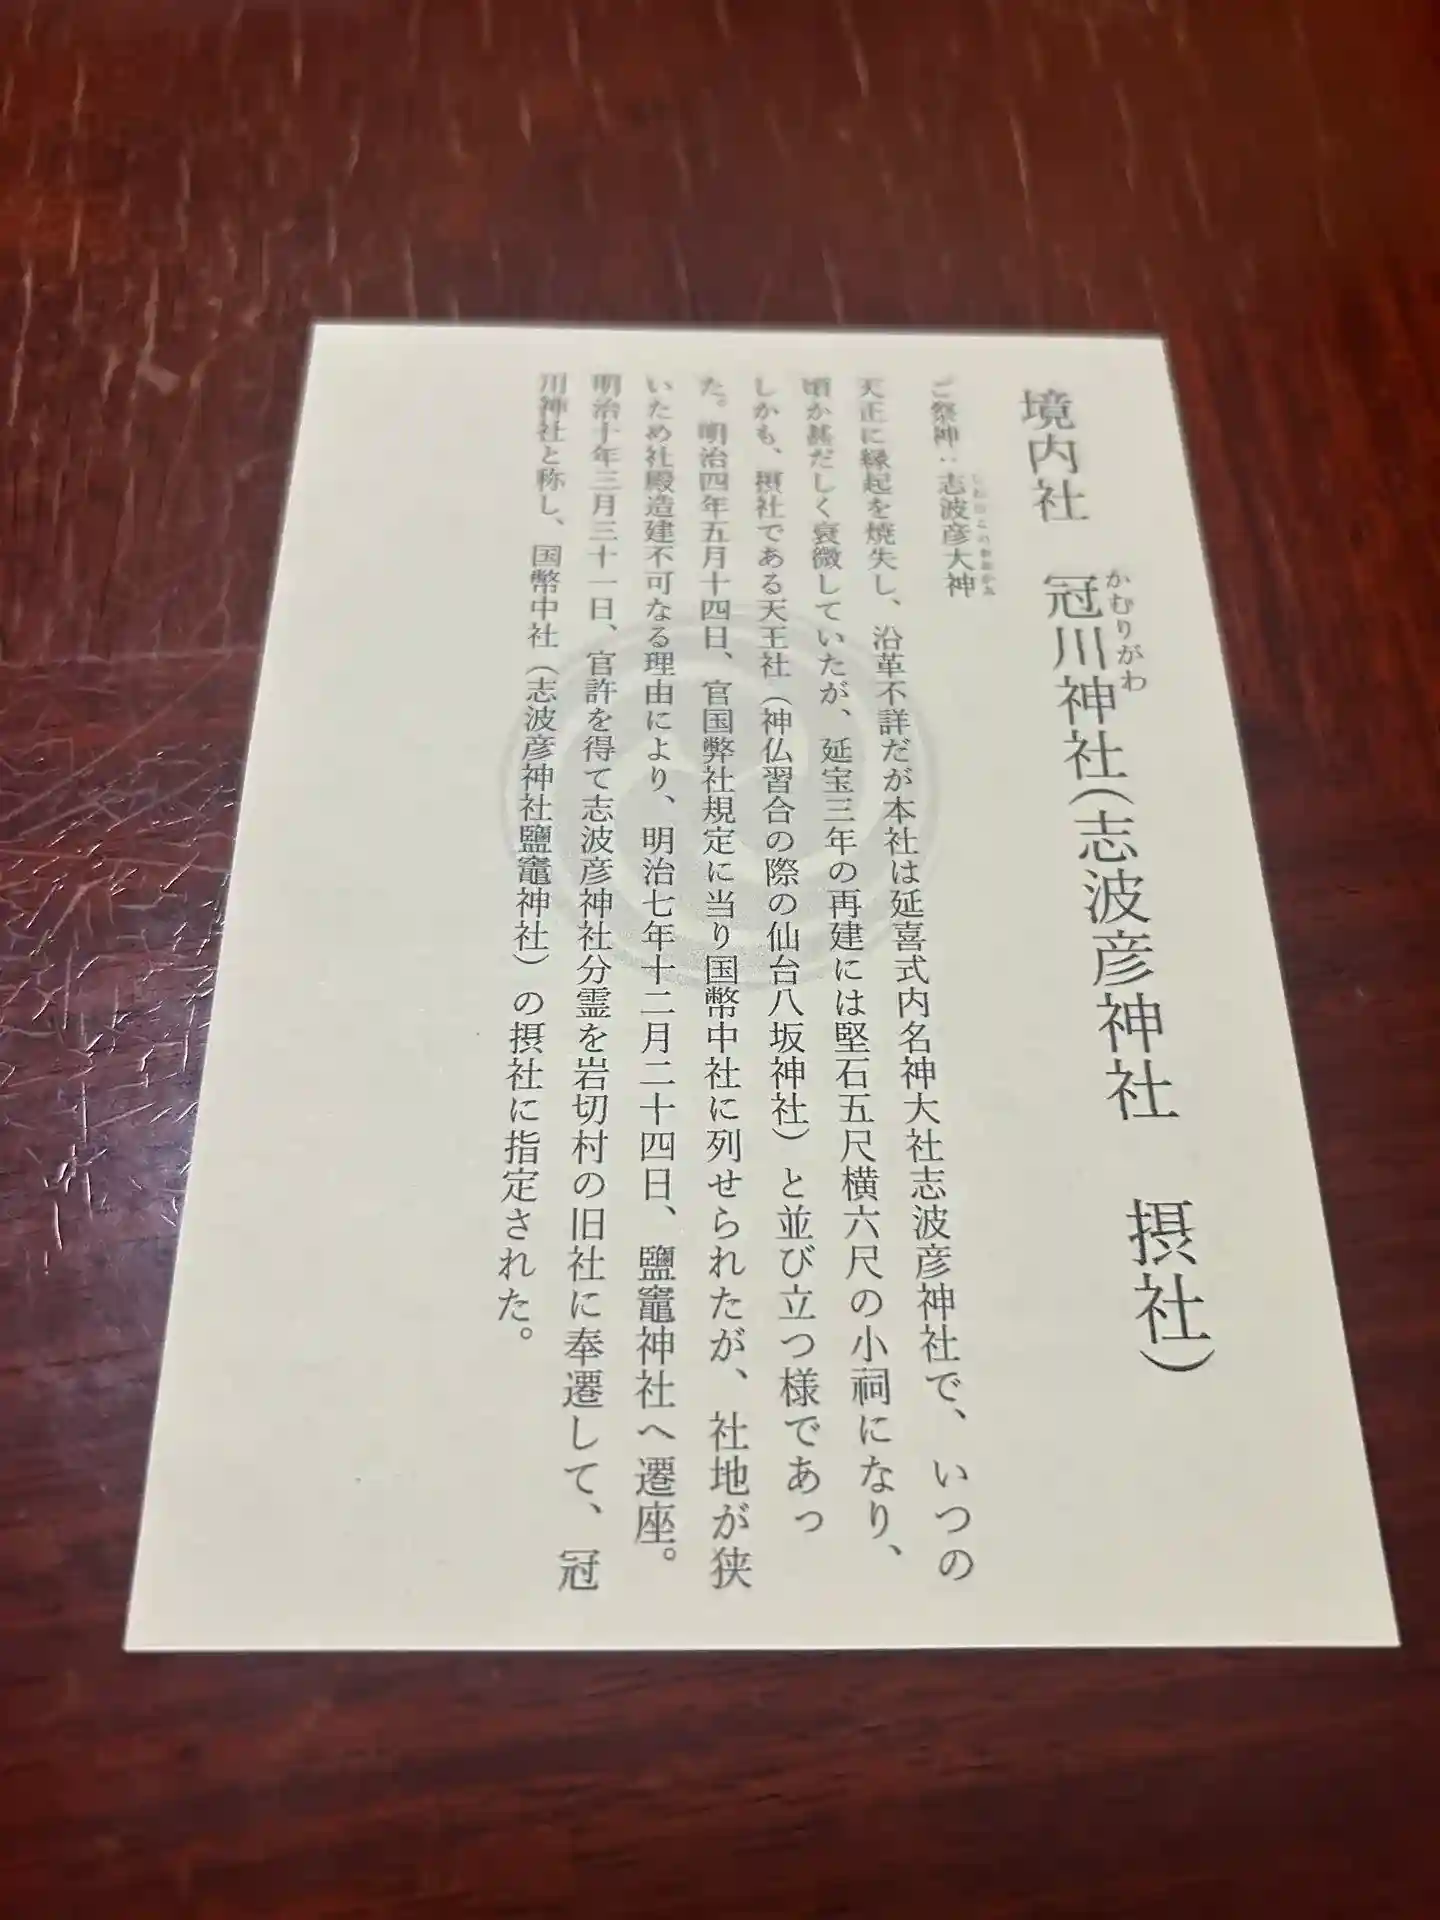 境内社　冠川神社(志波彦神社　摂社)
かむりがわ
ご祭神：志波彦大神
しわひこのおおかみ
天正に縁起を焼失し、沿革不詳だが本社は延喜式内名神大社志波彦神社で、いつの
頃か甚だしく衰微していたが、延宝三年の再建には堅石五尺横六尺の小祠になり、
しかも、摂社である天王社（神仏習合の際の仙台八坂神社）と並び立つ様であっ
た。明治四年五月十四日、官国弊社規定に当り国幣中社に列せられたが、社地が狭
いため社殿造建不可なる理由により、明治七年十二月二十四日、鹽竈神社へ遷座。
明治十年三月三十一日、官許を得て志波彦神社分霊を岩切村の旧社に奉遷して、冠
川神社と称し、国幣中社（志波彦神社鹽竈神社）の摂社に指定された。